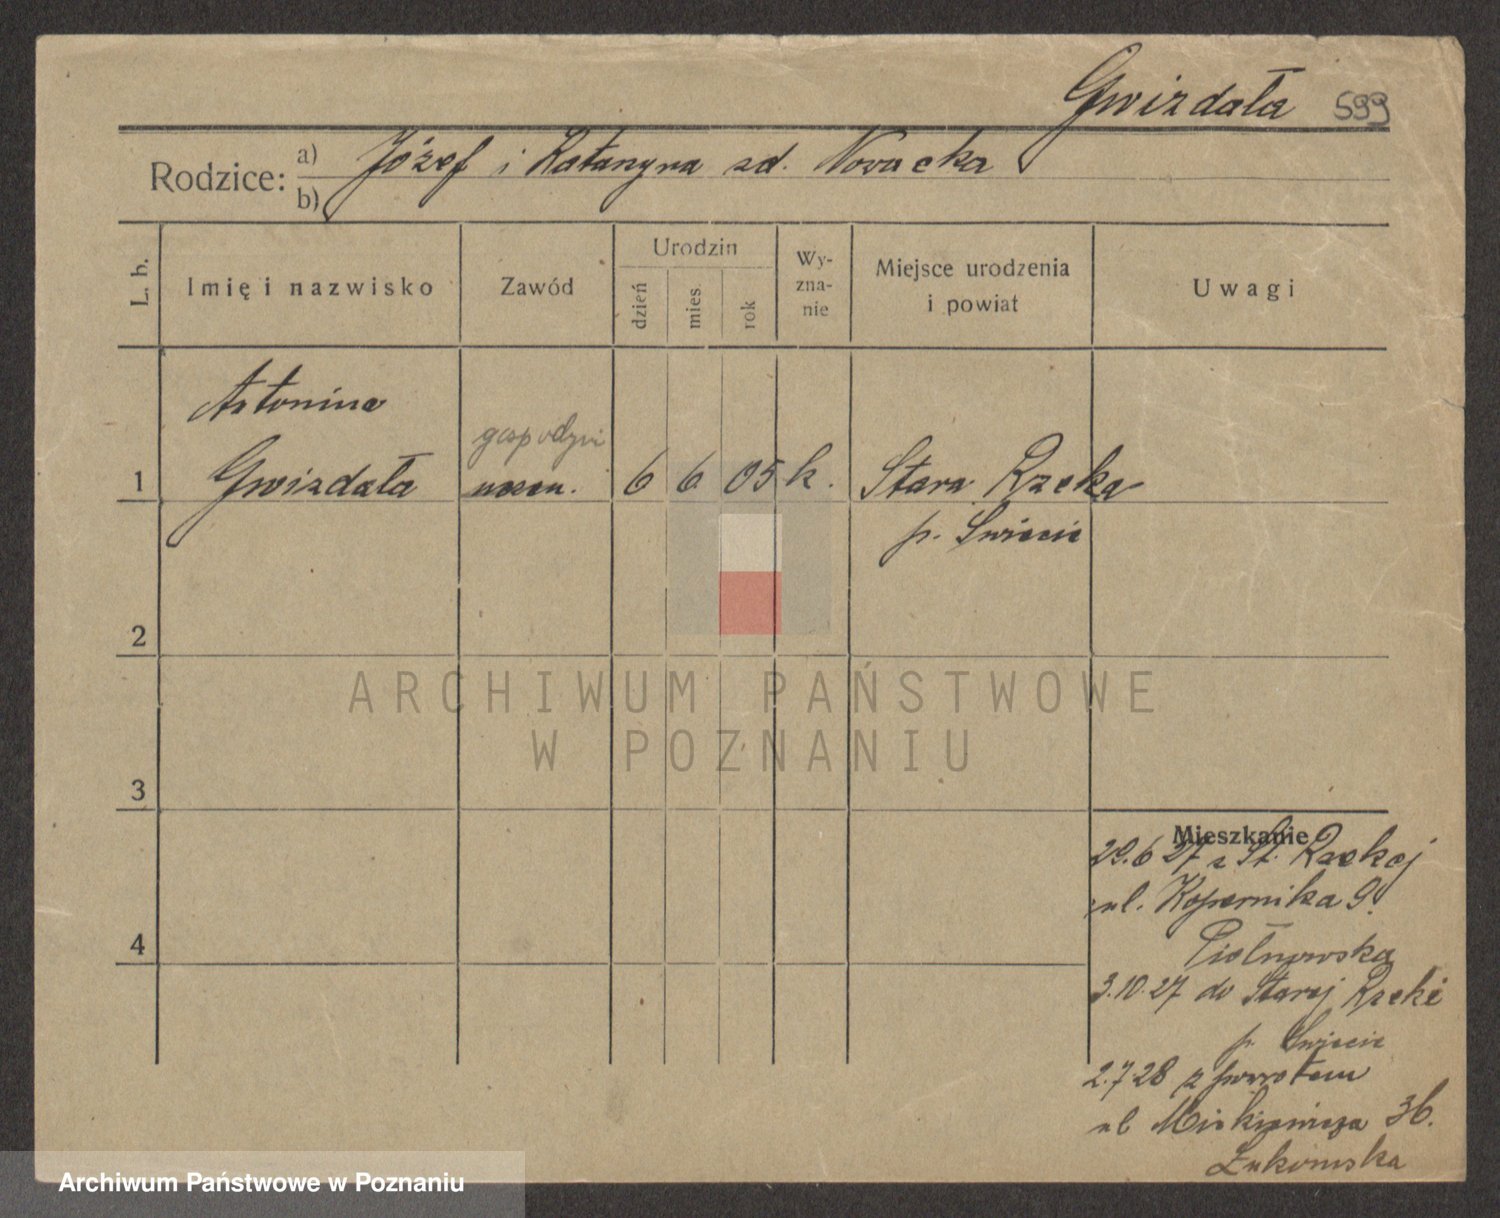 Gwizdała 599
Rodzice: a) Józef i Katarzyna zd. Nowacka
b)
L. b.
Imię i nazwisko
Zawód
Urodzin
dzień
mies.
rok
Wy-
zna-
nie
Miejsce urodzenia
i powiat
Uwagi
Antonina
gospodyni
1 Gwizdała uczen. 6 6 05 k. Stara Rzeka
p. Świecie
2
3
4
Mieszkanie
29.6 27 z St. Rzekej
ul. Kopernika 9.
Piotrowska
3.10.27 do Starej Rzeki
p. Świecie
2.7.28 z powrotem
ul Mickiewicza 36.
Łukomska
ARCHIWUM PAŃSTWOWE
W POZNANIU
Archiwum Państwowe w Poznaniu